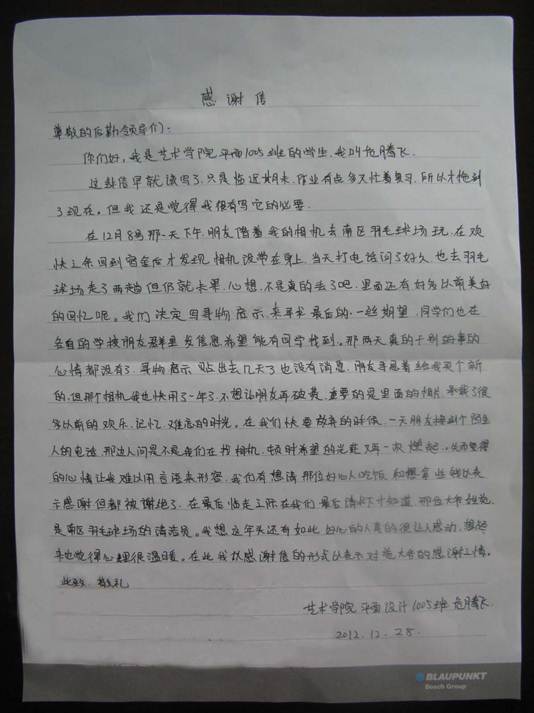 感谢信
尊敬的后勤领导们：
你们好，我是艺术学院平面1005班的学生，我叫危腾飞。
这封信早就该写了，只是临近期末，作业有点多又忙着复习，所以才拖到
了现在。但我还是觉得我很有写它的必要。
在12月8号那一天下午，朋友借着我的相机去南区羽毛球场玩，在欢
快之余回到宿舍后才发现相机没带在身上，当天打电话问了好久，也去羽毛
球场走了两趟但仍就未果，心想，不是真的丢了吧，里面还有好多以前美好
的回忆呢。我们决定写寻物启示，来寻求最后的一丝期望，同学们也在
各自的学校朋友群里发信息希望能有同学找到。那两天真的干别的事的
心情都没有了，寻物启示贴出去几天了也没有消息，朋友寻思着给我买个新
的，但那个相机我也快用了一年了，不想让朋友再破费，重要的是里面的相片，承载了很
多以前的欢乐，记忆，难忘的时光。在我们快要放弃的时候，一天朋友接到个陌生
人的电话，那边人问是不是我们在找相机，顿时希望的光芒又再一次燃起，失而复得
的心情让我难以用言语来形容，我们有想请那位好心人吃饭和想拿些钱以表
示感谢但都被谢绝了，在最后临走之际在我们最后请求下才知道，那位大爷姓范
是南区羽毛球场的清洁员。我想这年头还有如此好心的人真的很让人感动，想起
来也觉得心里很温暖。在此我以感谢信的形式以表示对范大爷的感谢之情。
此致 敬礼
艺术学院 平面设计1005班 危腾飞
2012.12.28.
BLAUPUNKT
Bosch Group